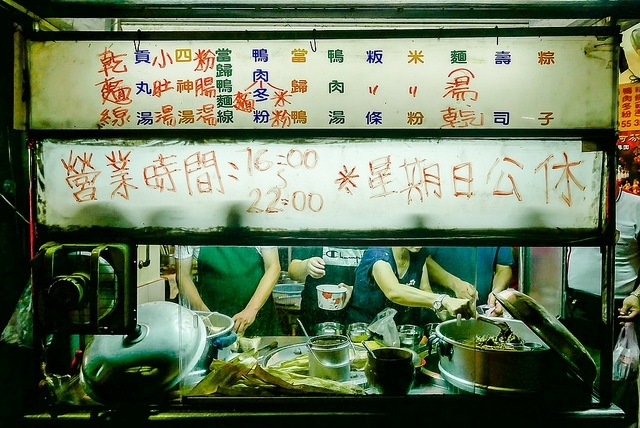 粽子
壽司
麵(湯乾)
米〃粉
粄〃條
鴨肉湯
當歸鴨
鴨肉冬粉
米粉
麵
當歸鴨麵線
粉腸湯
四神湯
小肚湯
貢丸湯
乾麵線
營業時間:16:00~22:00 *星期日公休